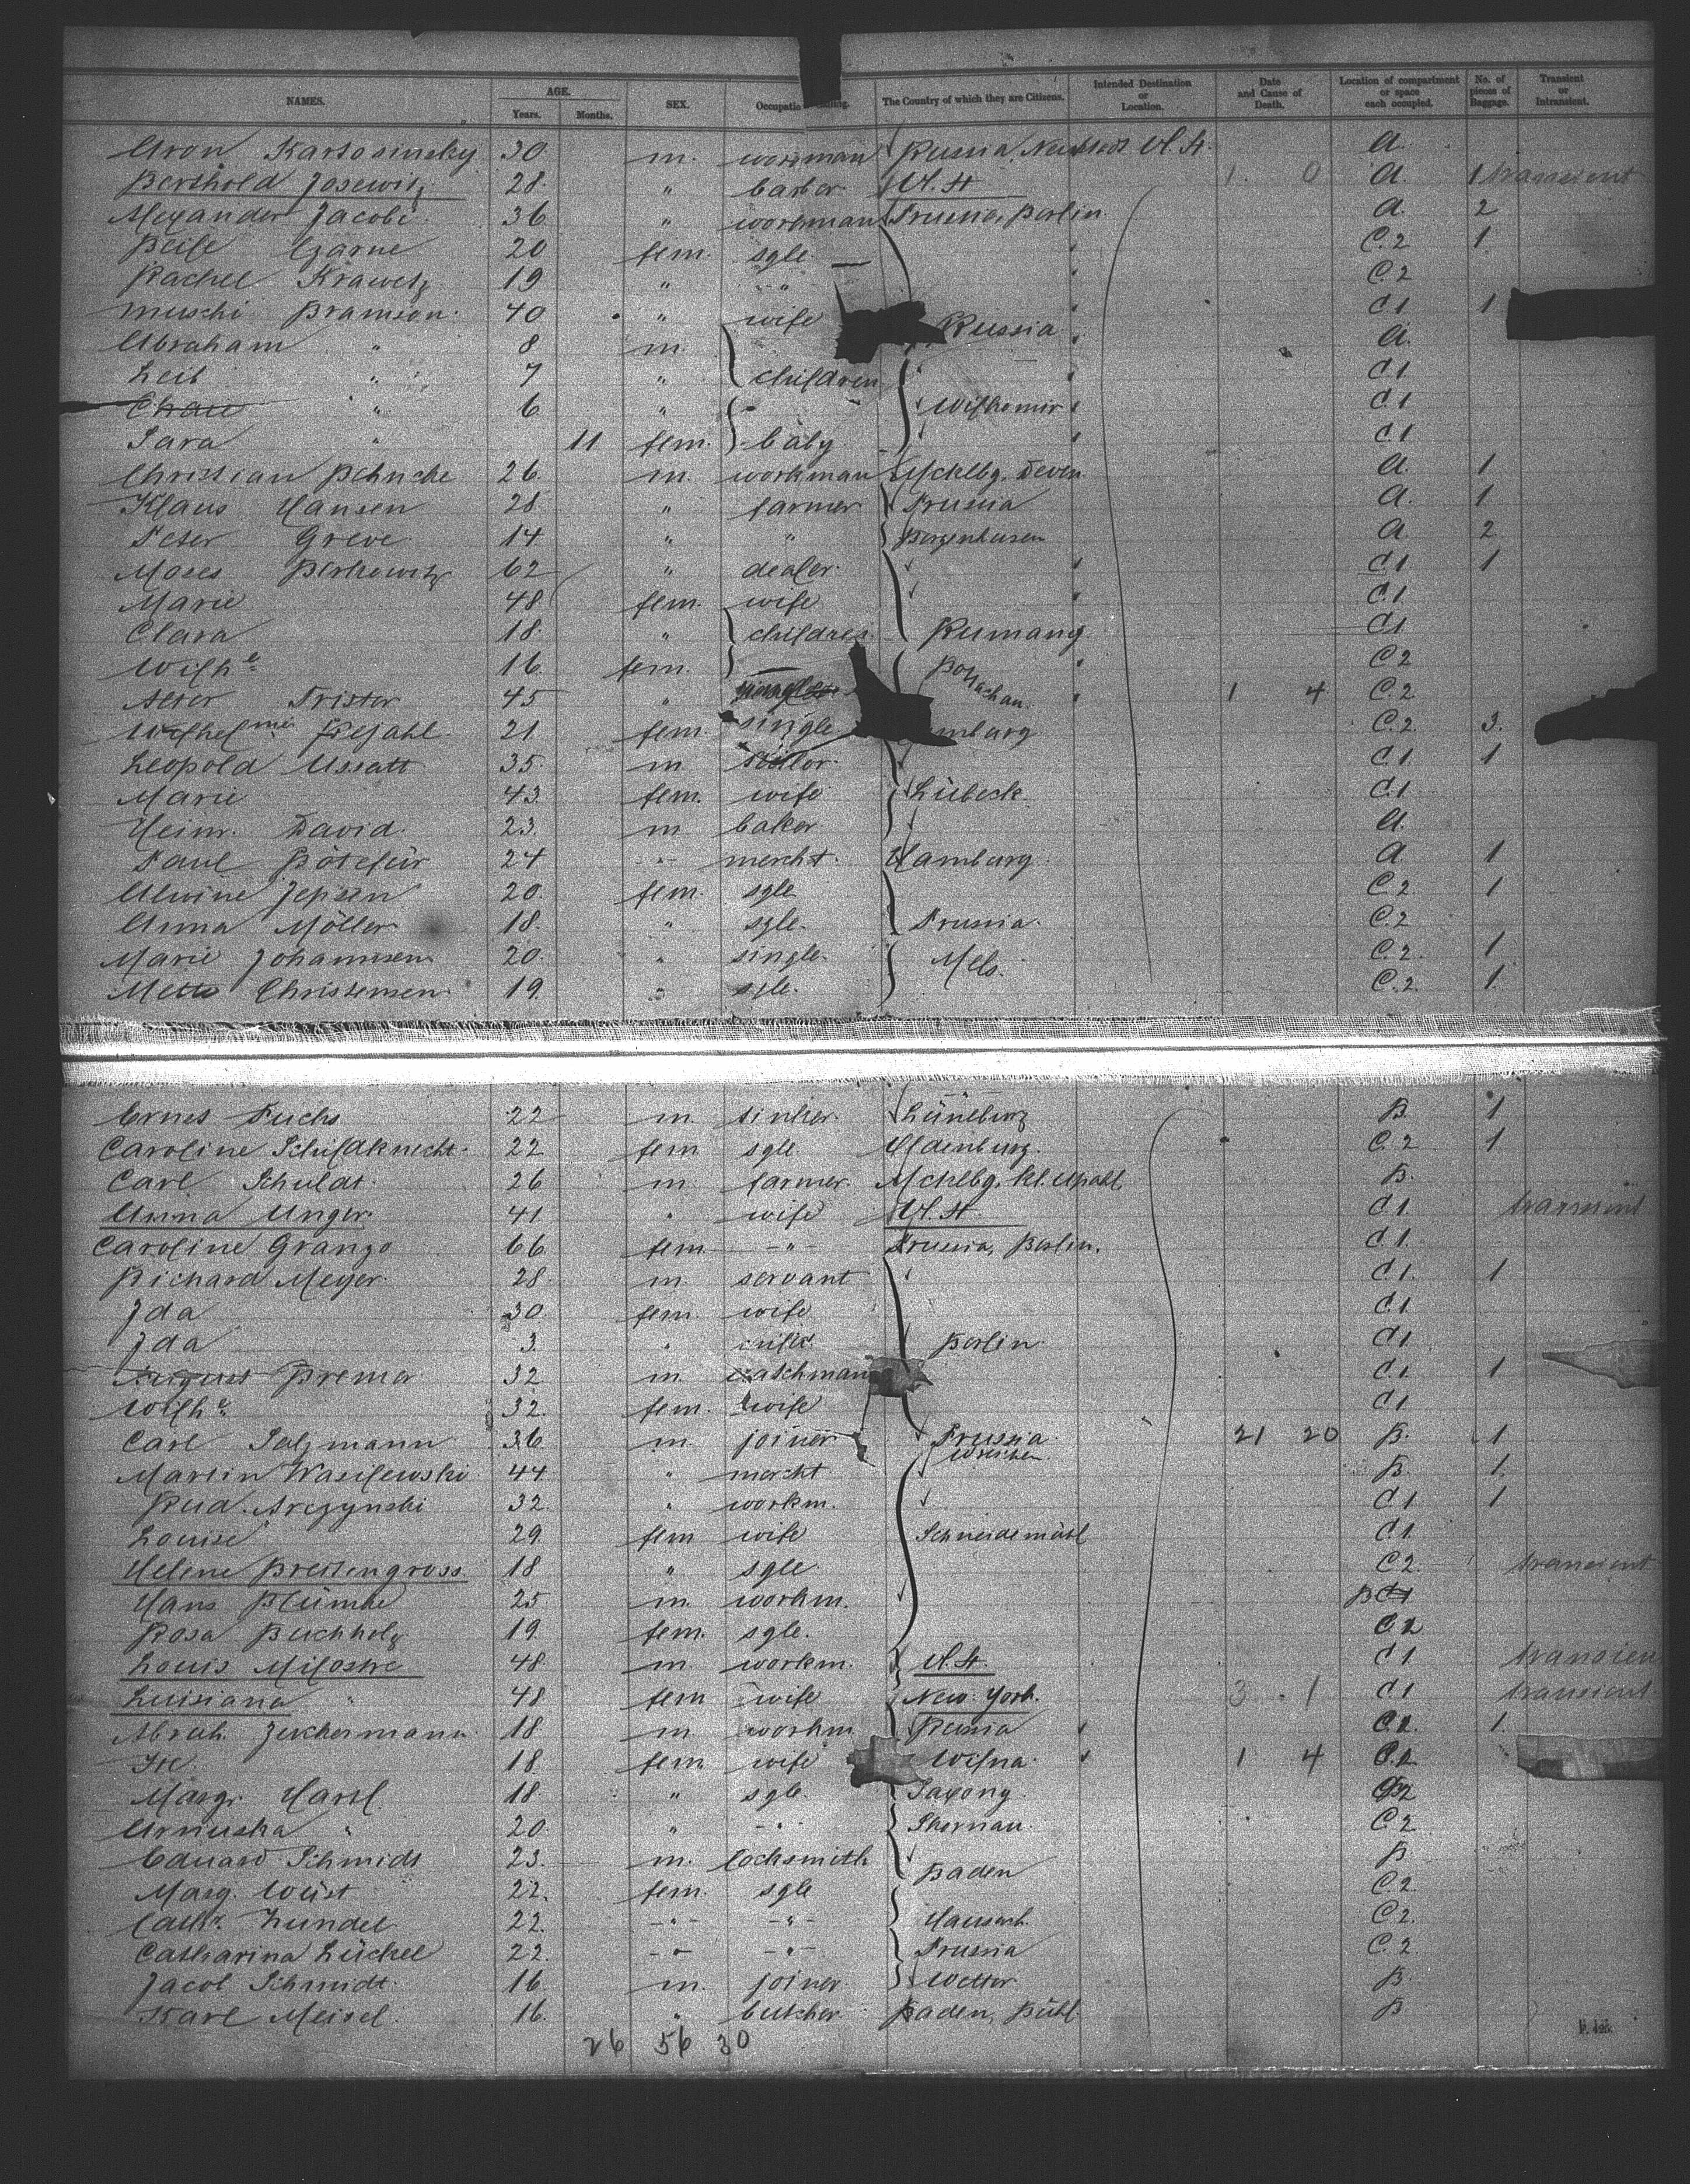 NAMES. AGE. Years. Months. SEX. Occupatio The Country of which they are Citizens. Intended Destination or Location. Date and Cause of Death. Location of compartment or space each occupied. No. of pieces of Baggage. Transient or Intransient.
Aron 30 m. workman Russia, Neustadt U.St. A.
Berthold Josewitz 28 " barber U.St 1 0 A. 1 transient
Alexander Jacobi 36 " workman Prussia, Berlin A. 2
20 fem. sgle C.2 1
Rachel Krawetz 19 " " C.2
Muschi Bramson 40 " wife Russia C.1 1
Abraham " 8 m. A.
Leib " 7 " children C.1
" 6 " Wilkomir C.1
Sara " 11 fem. baby C.1
Christian 26 m. workman Mcklbg. A. 1
Klaus Hansen 28 " farmer Prussia A. 1
Peter Greve 14 " " A 2
Moses Berkowitz 62 " dealer C.1 1
Marie 48 fem. wife C.1
Clara 18 " children C.1
Wilhe 16 fem. C.2
45 " 1 4 C.2
21 fem. single mburg C.2 3
Leopold 35 m C.1 1
Marie 43 fem. wife Lübeck C.1
Heinr. David 23 m baker A.
Paul Bötefür 24 " mercht. Hamburg A 1
Alwine Jepsen 20 fem. sgle C.2 1
Anna Möller 18 " sgle. Prussia C.2
Marie Johannsen 20 " single. Mels. C.2 1
Mette Christensen 19 " sgle. C.2 1
Ernes Fuchs 22 m Lüneburg B 1
Caroline Schildknecht 22 fem sgle Oldenburg C.2 1
Carl Schuldt 26 m farmer Mcklbg, Kl. Upahl B.
Anna Unger 41 " wife U.St C.1 transient
Caroline 66 fem " Prussia, Berlin. C.1
Richard Meyer 28 m. servant C.1 1
Ida 30 fem. wife C.1
Ida 3 " child Berlin C.1
August Bremer 32 m C.1 1
Wilhe 32 fem. wife C.1
Carl Salzmann 36 m joiner Prussia 21 20 B. 1
Martin Wasilewski 44 " mercht Wreschen B. 1
Rud. Arczynski 32 " workm. C.1 1
Louise 29 fem wife Schneidemühl C.1
Helene Breitengross 18 " sgle. C.2 transient
Hans Blümke 25 m. workm. B C1
Rosa Buchholz 19 fem. sgle. C.2
Louis 48 m. workm. U.St. C.1 transien
Luisiana " 48 fem wife New York. 3 1 C1 transient
Abrah. Zuckermann 18 m. workm. Russia C.2 1
18 fem. wife Wilna 1 4 C.2
Margr. 18 " sgle Saxony C2
" 20 " " C.2
Eduard Schmidt 23 m. locksmith B
Marg. Wüst 22 fem. sgle Baden C.2
22 " " Hausach C2
Catharina Lückel 22 " " Prussia C.2
Jacob Schmidt 16 m. joiner Wetter B
Karl Meisel 16 " butcher Baden, Bühl B
26 56 30